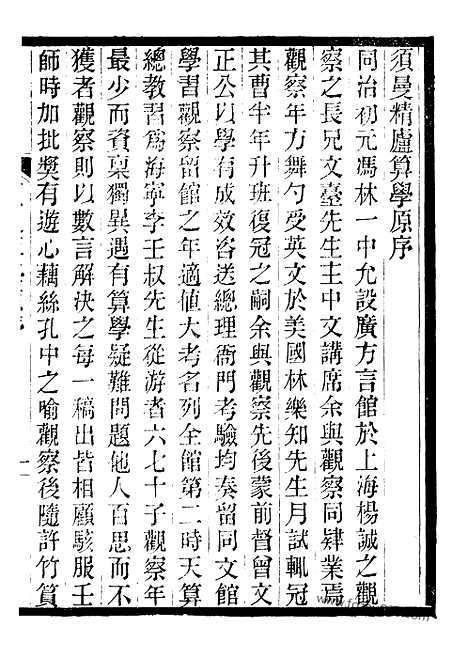 須曼精廬算學原序
同治初元馮林一中允設廣方言館於上海楊誠之觀
察之長兄文臺先生主中文講席余與觀察同肄業焉
觀察年方舞勺受英文於美國林樂知先生月試輒冠
其曹半年升班復冠之嗣余與觀察先後蒙前督曾文
正公以學有成效咨送總理衙門考驗均奏留同文館
學習觀察留館之年適値大考名列全館第二時天算
總教習爲海寧李壬叔先生從游者六七十子觀察年
最少而資稟獨異遇有算學疑難問題他人百思而不
獲者觀察則以數言解決之每一稿出皆相顧駭服壬
師時加批奬有遊心藕絲孔中之喻觀察後隨許竹篔